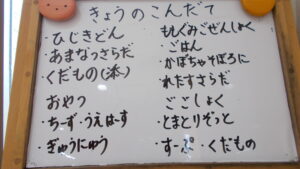 きょうのこんだて
・ひじきどん
あまなっさらだ
くだもの(添)
おやつ
・ちーず・うえはーす
・ぎゅうにゅう
もぐもぐみごぜんしょく
・ごはん
・かぼちゃそぼろに
・れたすさらだ
ごごしょく
・とまとりぞっと
・すーぷ・くだもの